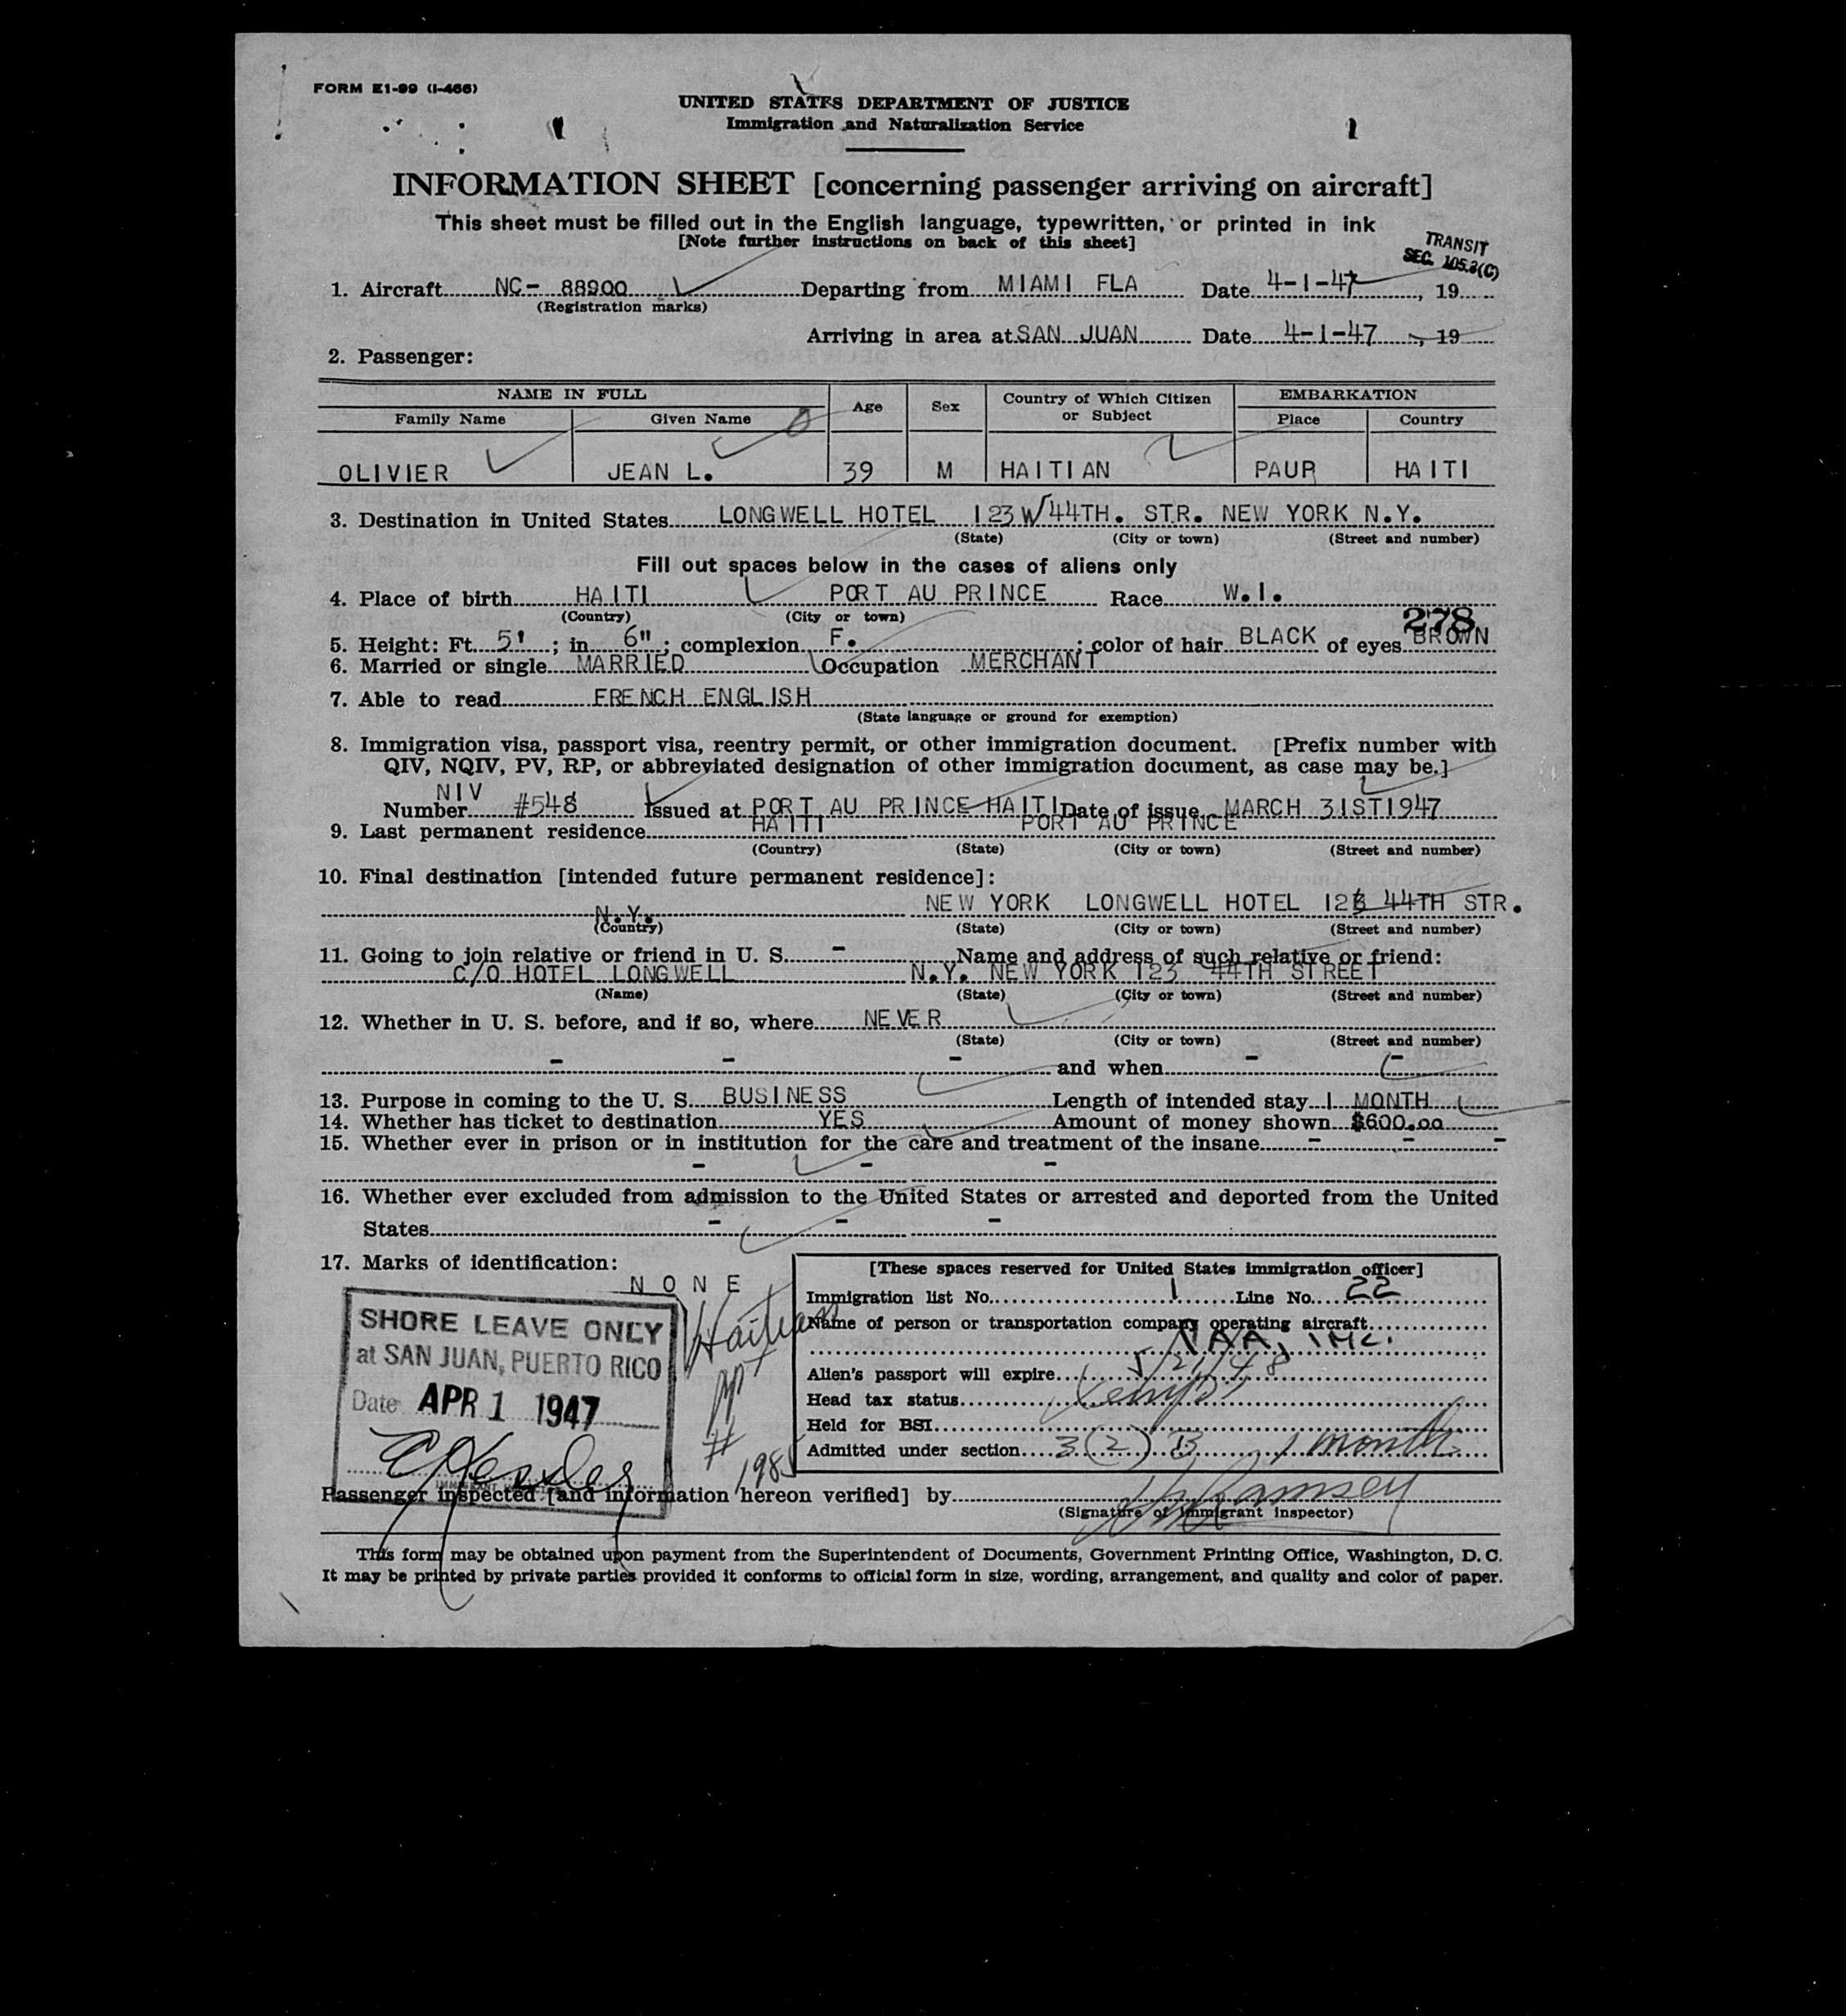 FORM E1-99 (I-466)
UNITED STATES DEPARTMENT OF JUSTICE
Immigration and Naturalization Service
INFORMATION SHEET [concerning passenger arriving on aircraft]
This sheet must be filled out in the English language, typewritten, or printed in ink
[Note further instructions on back of this sheet]
TRANSIT
SEC. 105.3(C)
1. Aircraft NC- 88900 Departing from MIAMI FLA Date 4-1-47, 19
(Registration marks)
Arriving in area at SAN JUAN Date 4-1-47, 19
2. Passenger:
NAME IN FULL Age Sex Country of Which Citizen or Subject EMBARKATION
Family Name Given Name Place Country
OLIVIER JEAN L. 39 M HAITIAN PAUP HAITI
3. Destination in United States LONGWELL HOTEL 123 W 44TH. STR. NEW YORK N.Y.
(State) (City or town) (Street and number)
Fill out spaces below in the cases of aliens only
4. Place of birth HAITI PORT AU PRINCE Race W.I.
(Country) (City or town)
278
5. Height: Ft. 5' ; in 6" ; complexion F. ; color of hair BLACK of eyes BROWN
6. Married or single MARRIED Occupation MERCHANT
7. Able to read FRENCH ENGLISH
(State language or ground for exemption)
8. Immigration visa, passport visa, reentry permit, or other immigration document. [Prefix number with
QIV, NQIV, PV, RP, or abbreviated designation of other immigration document, as case may be.]
NIV
Number #548 Issued at PORT AU PRINCE HAITI Date of issue MARCH 31ST1947
9. Last permanent residence HAITI PORT AU PRINCE
(Country) (State) (City or town) (Street and number)
10. Final destination [intended future permanent residence]:
N.Y. NEW YORK LONGWELL HOTEL 123 44TH STR.
(Country) (State) (City or town) (Street and number)
11. Going to join relative or friend in U. S. - Name and address of such relative or friend:
C/O HOTEL LONGWELL N.Y. NEW YORK 123 44TH STREET
(Name) (State) (City or town) (Street and number)
12. Whether in U. S. before, and if so, where NEVER
(State) (City or town) (Street and number)
- - - and when - -
13. Purpose in coming to the U. S. BUSINESS Length of intended stay 1 MONTH
14. Whether has ticket to destination YES Amount of money shown $600.00
15. Whether ever in prison or in institution for the care and treatment of the insane - - -
- - -
16. Whether ever excluded from admission to the United States or arrested and deported from the United
States - - -
17. Marks of identification:
NONE
SHORE LEAVE ONLY
at SAN JUAN, PUERTO RICO
Date APR 1 1947
Haitian
ppt
#
1985
[These spaces reserved for United States immigration officer]
Immigration list No. 1 Line No. 22
Name of person or transportation company operating aircraft
PAA, INC.
Alien's passport will expire 5/21/48
Head tax status
Held for BSI
Admitted under section 3(2) B 1 month
Passenger inspected [and information hereon verified] by Ramsey
(Signature of immigrant inspector)
This form may be obtained upon payment from the Superintendent of Documents, Government Printing Office, Washington, D. C.
It may be printed by private parties provided it conforms to official form in size, wording, arrangement, and quality and color of paper.